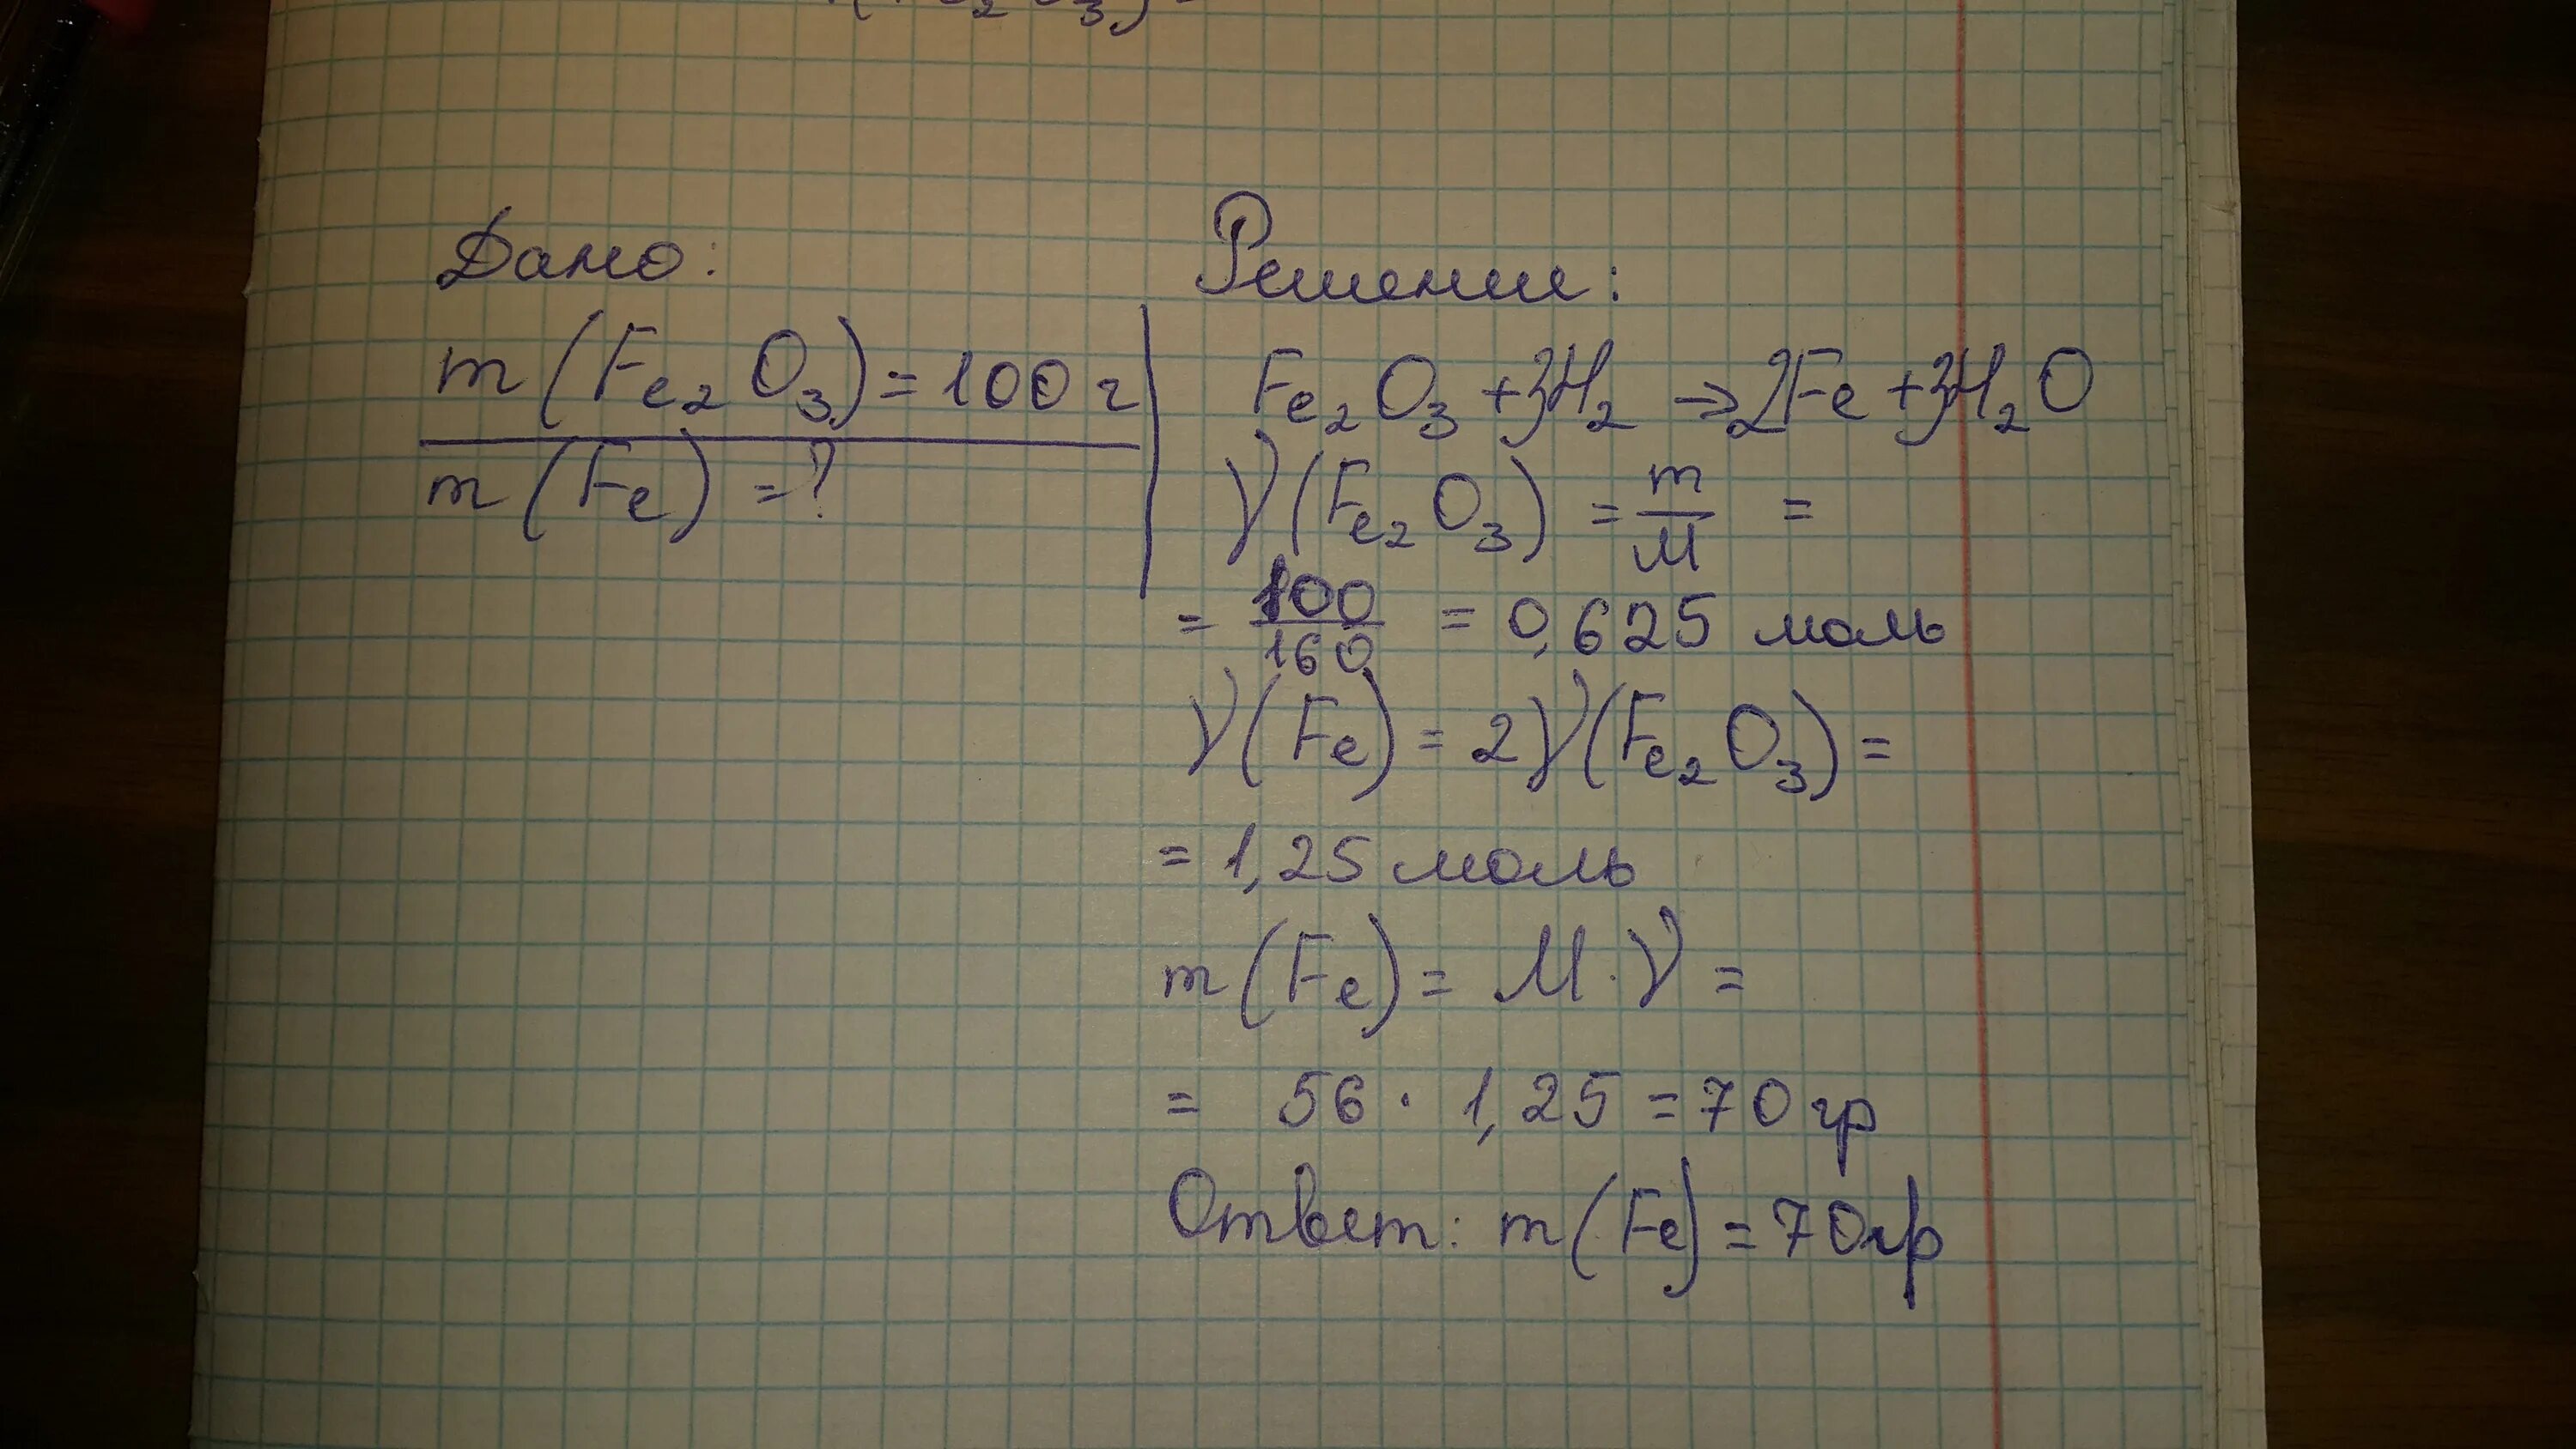 Дано:
m(Fe₂O₃)=100 г
m(Fe) =?
Решение:
Fe₂O₃ +3H₂ →2Fe +3H₂O
ν(Fe₂O₃) = m/M =
= 100/160 = 0,625 моль
ν(Fe) = 2ν(Fe₂O₃) =
= 1,25 моль
m(Fe) = M·ν =
= 56 · 1,25 =70 гр
Ответ: m(Fe) =70гр